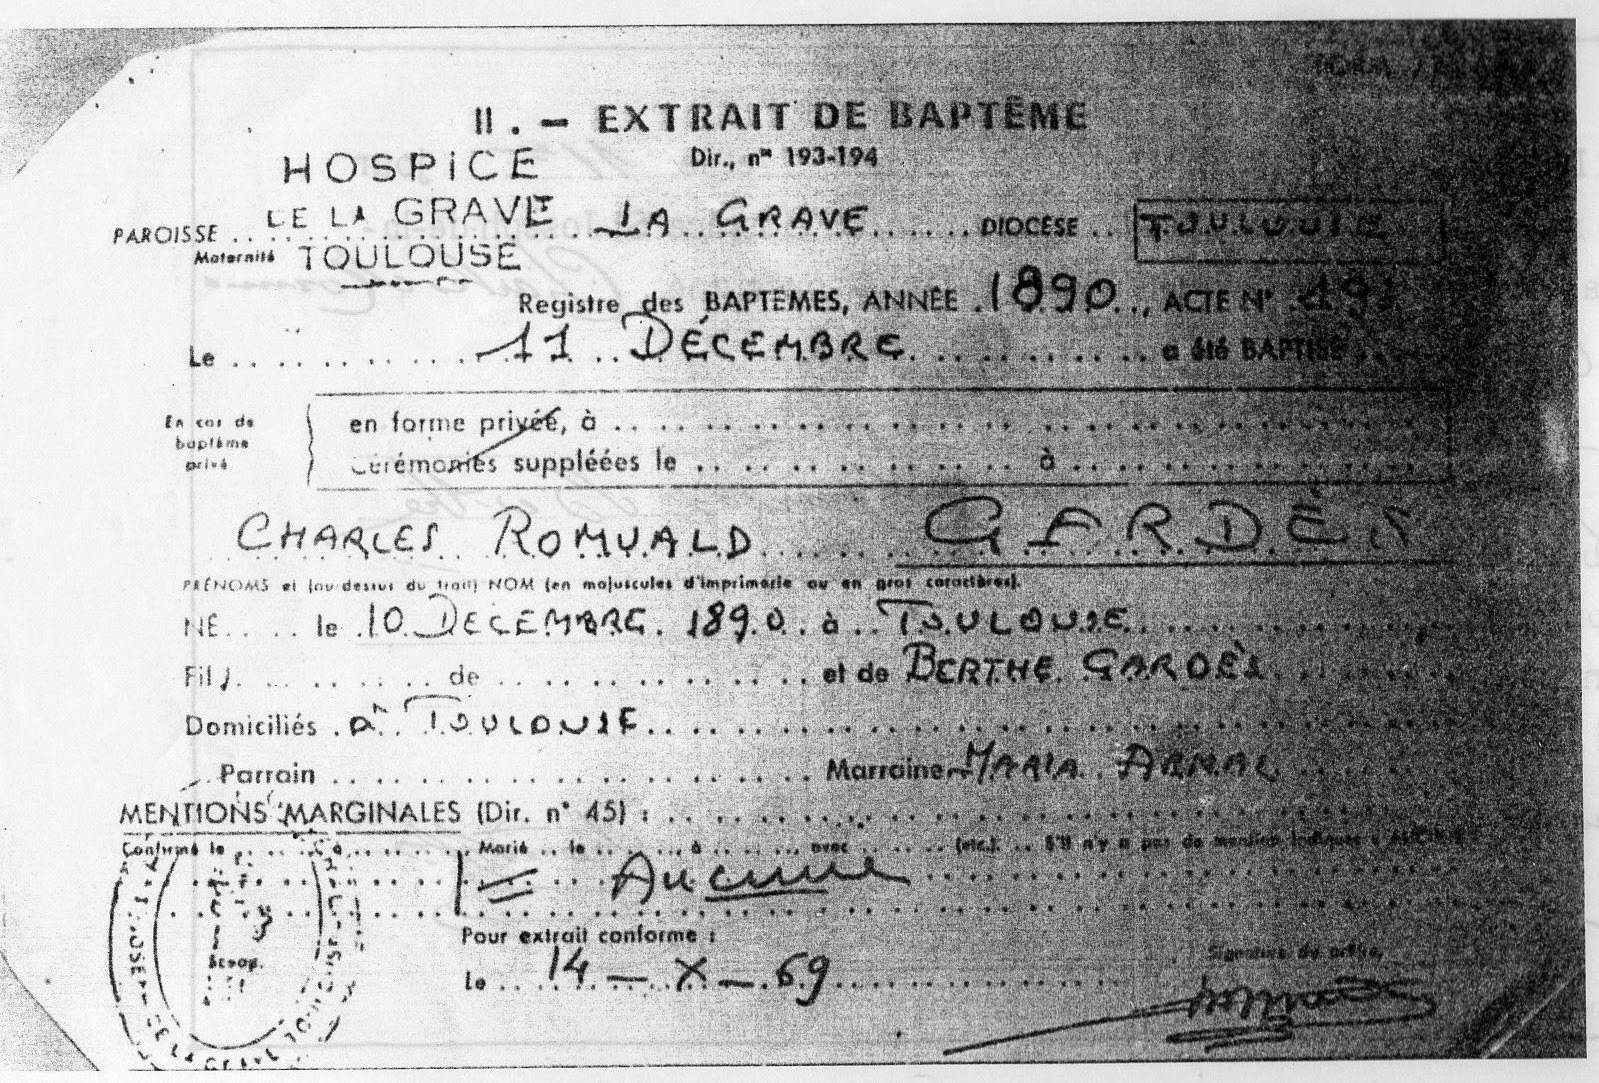 II. — EXTRAIT DE BAPTÊME
Dir., nos 193-194
HOSPICE
DE LA GRAVE
TOULOUSE
PAROISSE LA GRAVE DIOCÈSE TOULOUSE
Maternité
Registre des BAPTEMES, ANNÉE 1890, ACTE N°
Le 11 DÉCEMBRE a été BAPTISÉ
En cas de
baptême
privé
en forme privée, à
Cérémonies suppléées le à
CHARLES ROMUALD GARDÈS
PRÉNOMS et (au dessus du trait) NOM (en majuscules d'imprimerie ou en gros caractères).
NÉ le 10 DECEMBRE 1890 à TOULOUSE
Fils de et de BERTHE GARDÈS
Domiciliés à TOULOUSE
Parrain Marraine MARIA ARNAL
MENTIONS MARGINALES (Dir. n° 45) :
Confirmé le à Marié le à avec (etc.). S'il n'y a pas de mention indiquer : AUCUNE
= Aucune
Pour extrait conforme :
Le 14 - X - 69
Signature du prêtre,